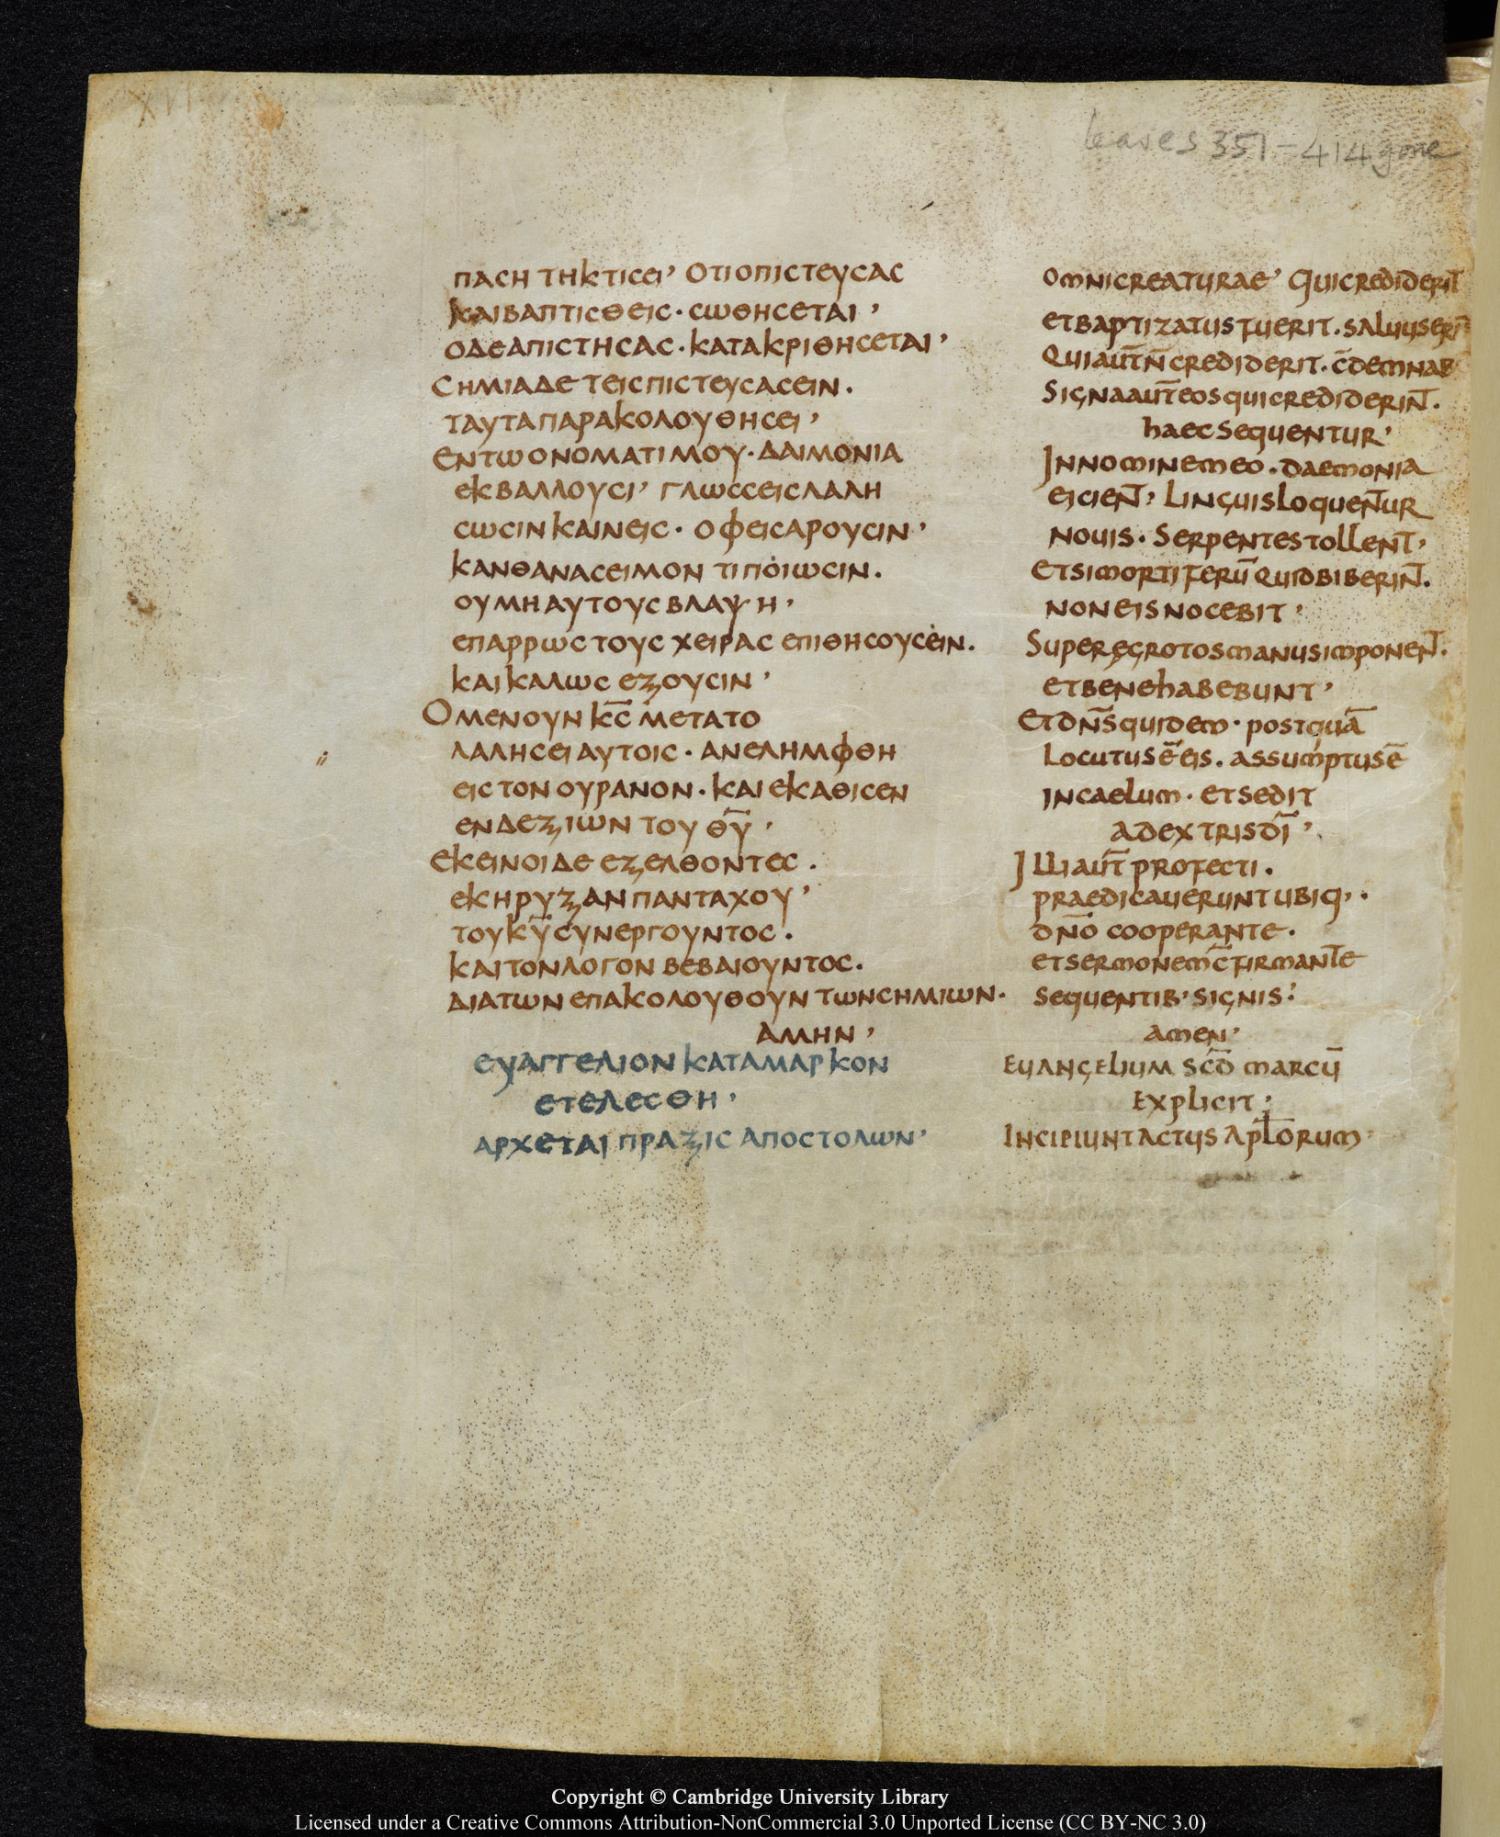 leaves 351-414 gone
ΠΑCΗ ΤΗ ΚΤΙCΕΙ’ ΟΤΙ Ο ΠΙCΤΕΥCΑC
ΚΑΙ ΒΑΠΤΙCΘΕΙC· CΩΘΗCΕΤΑΙ’
Ο ΔΕ ΑΠΙCΤΗCΑC· ΚΑΤΑΚΡΙΘΗCΕΤΑΙ’
CΗΜΙΑ ΔΕ ΤΕΙC ΠΙCΤΕΥCΑCΕΙΝ.
ΤΑΥΤΑ ΠΑΡΑΚΟΛΟΥΘΗCΕΙ’
ΕΝ ΤΩ ΟΝΟΜΑΤΙ ΜΟΥ· ΔΑΙΜΟΝΙΑ
ΕΚΒΑΛΛΟΥCΙ’ ΓΛΩCCΕΙC ΛΑΛΗ
CΩCΙΝ ΚΑΙΝΕΙC· ΟΦΕΙC ΑΡΟΥCΙΝ’
ΚΑΝ ΘΑΝΑCΕΙΜΟΝ ΤΙ ΠΟΙΩCΙΝ.
ΟΥ ΜΗ ΑΥΤΟΥC ΒΛΑΨΗ’
ΕΠ ΑΡΡΩCΤΟΥC ΧΕΙΡΑC ΕΠΙΘΗCΟΥCΕΙΝ.
ΚΑΙ ΚΑΛΩC ΕΞΟΥCΙΝ’
Ο ΜΕΝ ΟΥΝ Κ̅C̅ ΜΕΤΑ ΤΟ
ΛΑΛΗCΕΙ ΑΥΤΟΙC· ΑΝΕΛΗΜΦΘΗ
ΕΙC ΤΟΝ ΟΥΡΑΝΟΝ· ΚΑΙ ΕΚΑΘΙCΕΝ
ΕΝ ΔΕΞΙΩΝ ΤΟΥ Θ̅Υ̅’
ΕΚΕΙΝΟΙ ΔΕ ΕΞΕΛΘΟΝΤΕC.
ΕΚΗΡΥΞΑΝ ΠΑΝΤΑΧΟΥ’
ΤΟΥ Κ̅Υ̅ CΥΝΕΡΓΟΥΝΤΟC.
ΚΑΙ ΤΟΝ ΛΟΓΟΝ ΒΕΒΑΙΟΥΝΤΟC.
ΔΙΑ ΤΩΝ ΕΠΑΚΟΛΟΥΘΟΥΝΤΩΝ CΗΜΙΩΝ.
ΑΜΗΝ’
ΕΥΑΓΓΕΛΙΟΝ ΚΑΤΑ ΜΑΡΚΟΝ
ΕΤΕΛΕCΘΗ’
ΑΡΧΕΤΑΙ ΠΡΑΞΙC ΑΠΟCΤΟΛΩΝ’
omni creaturae’ Qui crediderit
et baptizatus fuerit. saluus
Qui aut̅ n̅ crediderit. c̅demnab
Signa aut̅ eos qui crediderin̅t.
haec sequentur’
In nomine meo. daemonia
eicien̅t’ Linguis loquen̅tur
nouis. Serpentes tollen̅t’
et si mortiferu̅ quid biberin̅t.
non eis nocebit’
Super egrotos manus imponen̅t.
et bene habebunt’
Et dn̅s quidem· postqua̅
Locutus e̅ eis. assumptus e̅
in caelum· et sedit
ad extris dı̅’
Illi aut̅ profecti.
praedicauerunt ubiq’.
dn̅o cooperante.
et sermonem c̅firman̅te
sequentib’ signis:
amen’
Euangelium scd̅ marcu̅
Explicit:
Incipiunt actus apl̅orum·
Copyright © Cambridge University Library
Licensed under a Creative Commons Attribution-NonCommercial 3.0 Unported License (CC BY-NC 3.0)